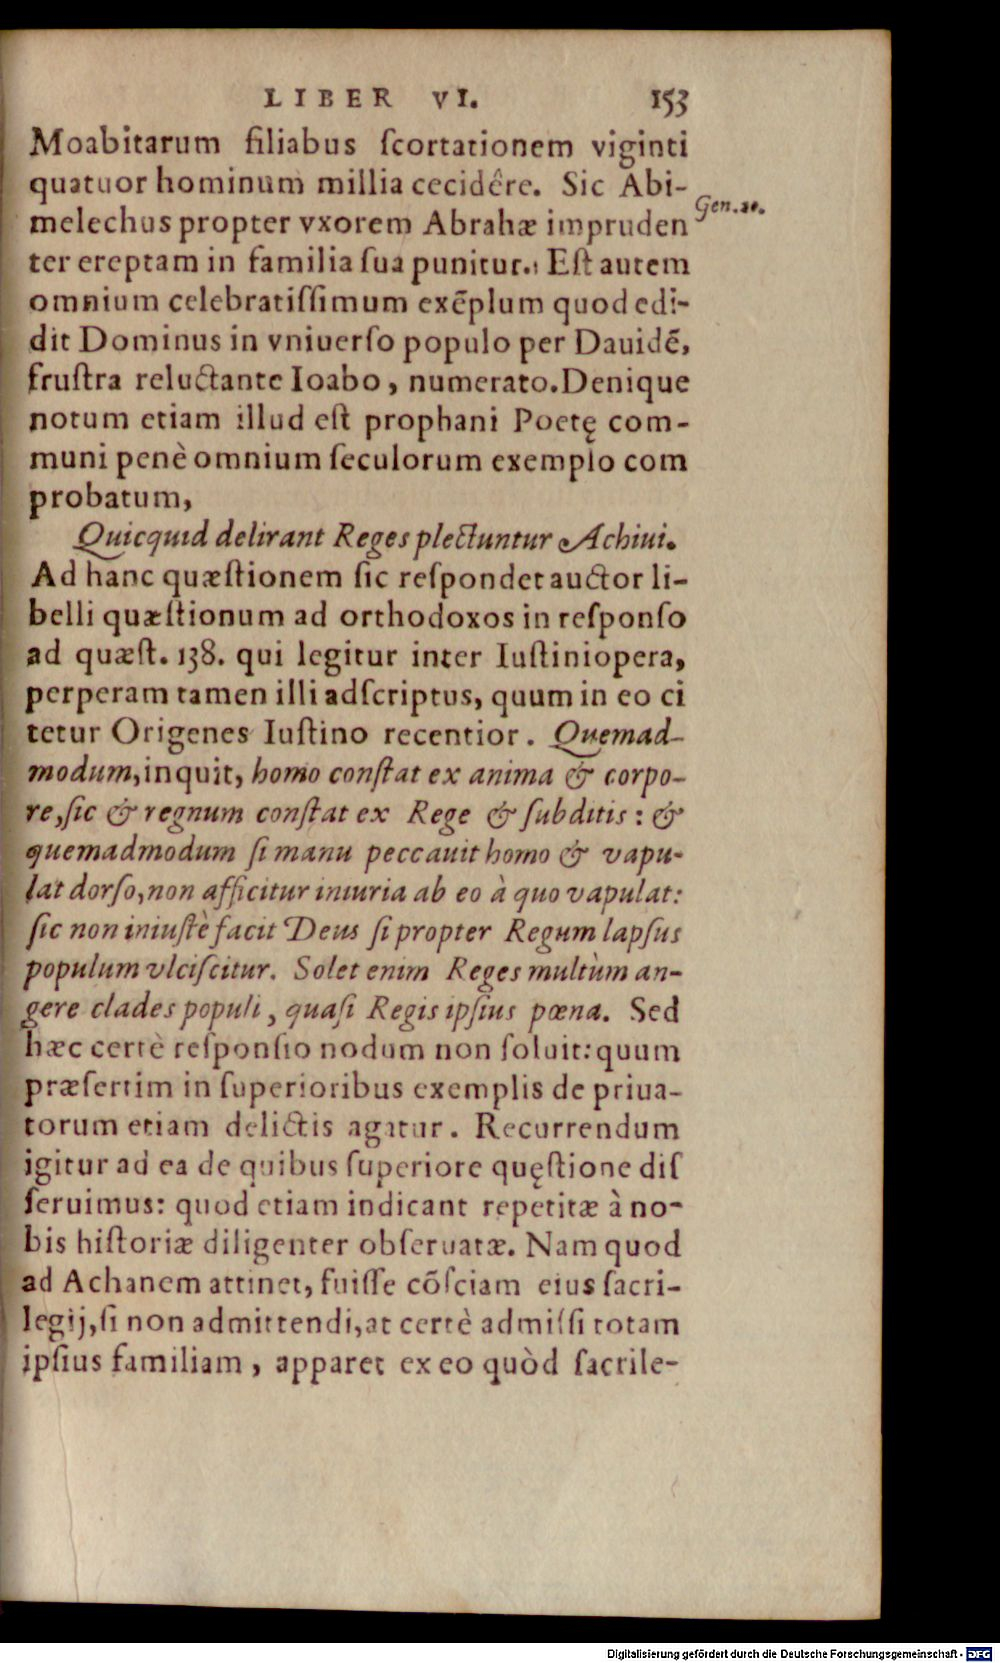 LIBER VI. 153
Moabitarum filiabus ſcortationem viginti
quatuor hominum millia cecidêre. Sic Abi-
Gen.20.
melechus propter vxorem Abrahæ impruden
ter ereptam in familia ſua punitur. Eſt autem
omnium celebratiſſimum exẽplum quod edi-
dit Dominus in vniuerſo populo per Dauidẽ,
fruſtra reluctante Ioabo, numerato. Denique
notum etiam illud eſt prophani Poetę com-
muni penè omnium ſeculorum exemplo com
probatum,
Quicquid delirant Reges plectuntur Achiui.
Ad hanc quæſtionem ſic reſpondet auctor li-
belli quæſtionum ad orthodoxos in reſponſo
ad quæſt. 138. qui legitur inter Iuſtini opera,
perperam tamen illi adſcriptus, quum in eo ci
tetur Origenes Iuſtino recentior. Quemad-
modum, inquit, homo conſtat ex anima & corpo-
re, ſic & regnum conſtat ex Rege & ſubditis: &
quemadmodum ſi manu peccauit homo & vapu-
lat dorſo, non afficitur iniuria ab eo à quo vapulat:
ſic non iniuſtè facit Deus ſi propter Regum lapſus
populum vlciſcitur. Solet enim Reges multùm an-
gere clades populi, quaſi Regis ipſius pœna. Sed
hæc certè reſponſio nodum non ſoluit: quum
præſertim in ſuperioribus exemplis de priua-
torum etiam delictis agatur. Recurrendum
igitur ad ea de quibus ſuperiore quęſtione diſ
ſeruimus: quod etiam indicant repetitæ à no-
bis hiſtoriæ diligenter obſeruatæ. Nam quod
ad Achanem attinet, fuiſſe cõſciam eius ſacri-
legij, ſi non admittendi, at certè admiſſi totam
ipſius familiam, apparet ex eo quòd ſacrile-
Digitalisierung gefördert durch die Deutsche Forschungsgemeinschaft - DFG